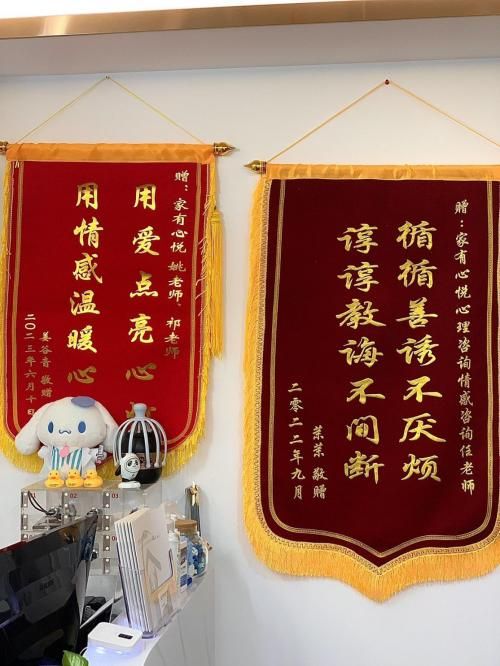 赠：家有心悦 姚老师、祁老师
用爱点亮心
用情感温暖心
姜谷音 敬赠
二〇二三年六月十日
赠：家有心悦心理咨询情感咨询任老师
循循善诱不厌烦
谆谆教诲不间断
茉茉 敬赠
二零二二年九月
01
02
03